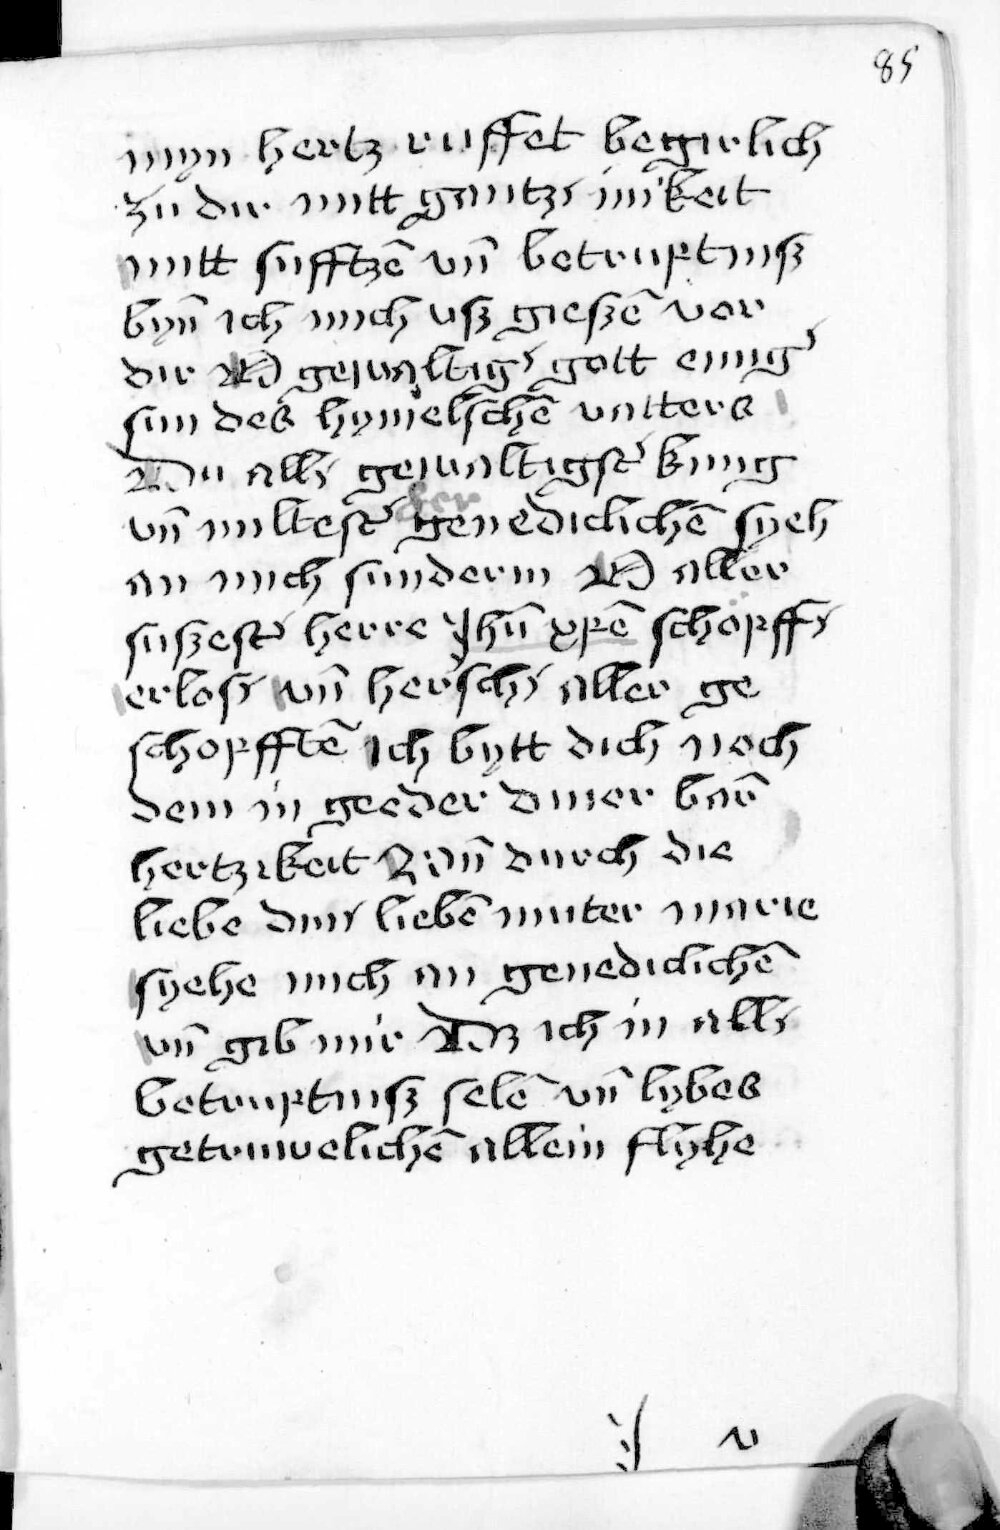 85
myn hertz ruffet begirlich
zu dir mitt gantz' in'keit
mitt sufftzē vn̄ betruptnisz
byn̄ ich mich vsz gieszē vor
dir O gewaltig' gott einig'
sun des hym̄elschē vatters
Du all' gewaltigst' kunig
vn̄ miltest' genediclichē syeh
an mich sunderin O aller
suszest' herre Jhū xpē schopff'
erlos' vn̄ her'sch' aller ge
schopfftē Ich bytt dich noch
dem in geeder diner barm̄
hertzikeit Vn̄ durch die
liebe din' liebē muter marie
syehe mich an genediclichē
vn̄ gib mir Dz ich in all'
betruptnisz selē vn̄ lybes
getruwelichē allein flyhe
v